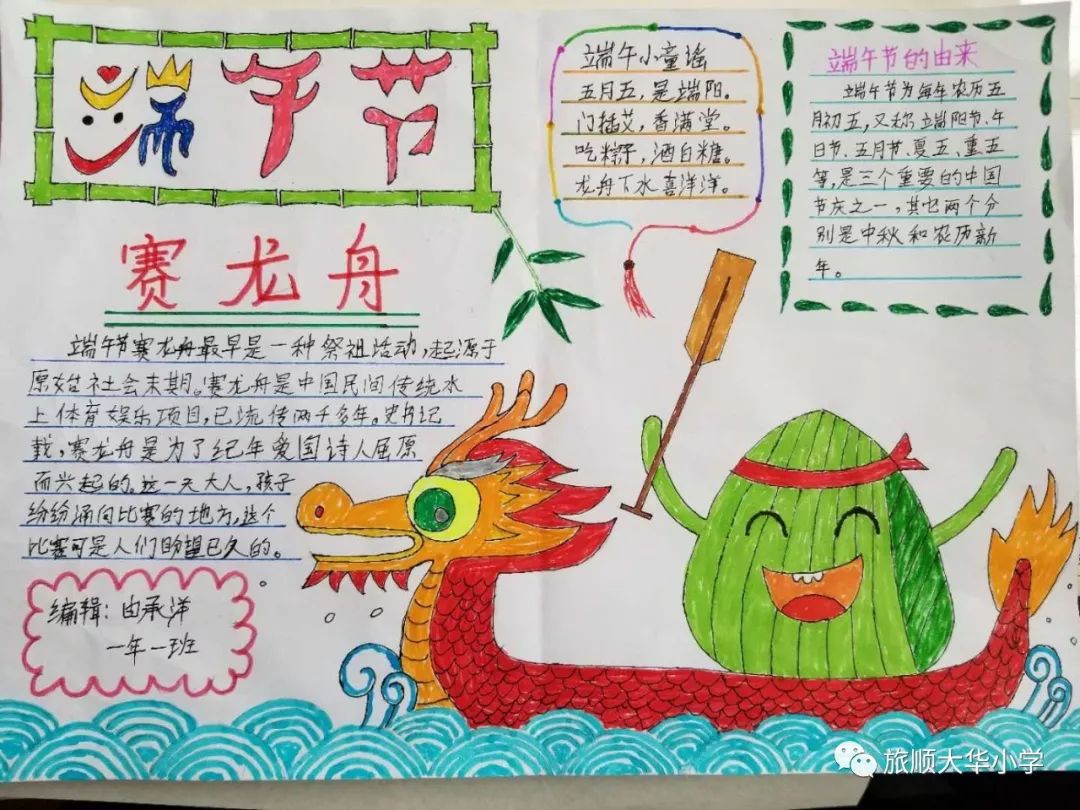 端午节
赛龙舟
端午节赛龙舟最早是一种祭祖活动，起源于
原始社会末期。赛龙舟是中国民间传统水
上体育娱乐项目，已流传两千多年。史书记
载，赛龙舟是为了纪年爱国诗人屈原
而兴起的。这一天大人，孩子
纷纷涌向比赛的地方，这个
比赛可是人们盼望已久的。
编辑：由承洋
一年一班
端午小童谣
五月五，是端阳。
门插艾，香满堂。
吃粽子，洒白糖。
龙舟下水喜洋洋。
端午节的由来
端午节为每年农历五
月初五，又称端阳节、午
日节、五月节、夏五、重五
等，是三个重要的中国
节庆之一，其它两个分
别是中秋和农历新
年。
旅顺大华小学